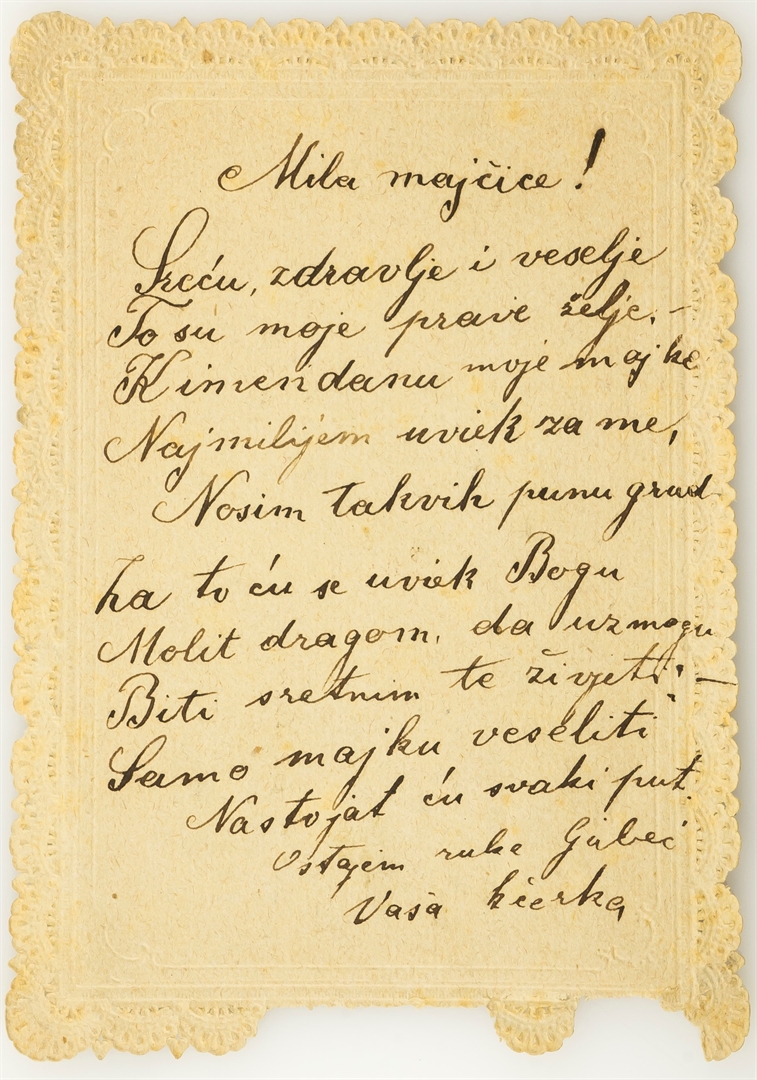 Mila majčice!
Sreću, zdravlje i veselje
To su moje prave želje. –
K imendanu moje majke
Najmilijem uviek za me,
Nosim takvih punu grud
Za to ću se uviek Bogu
Molit dragom, da uzmogu
Biti sretnim te živjeti. –
Samo majku veseliti
Nastojat ću svaki put.
Ostajem ruke
Vaša kćerka